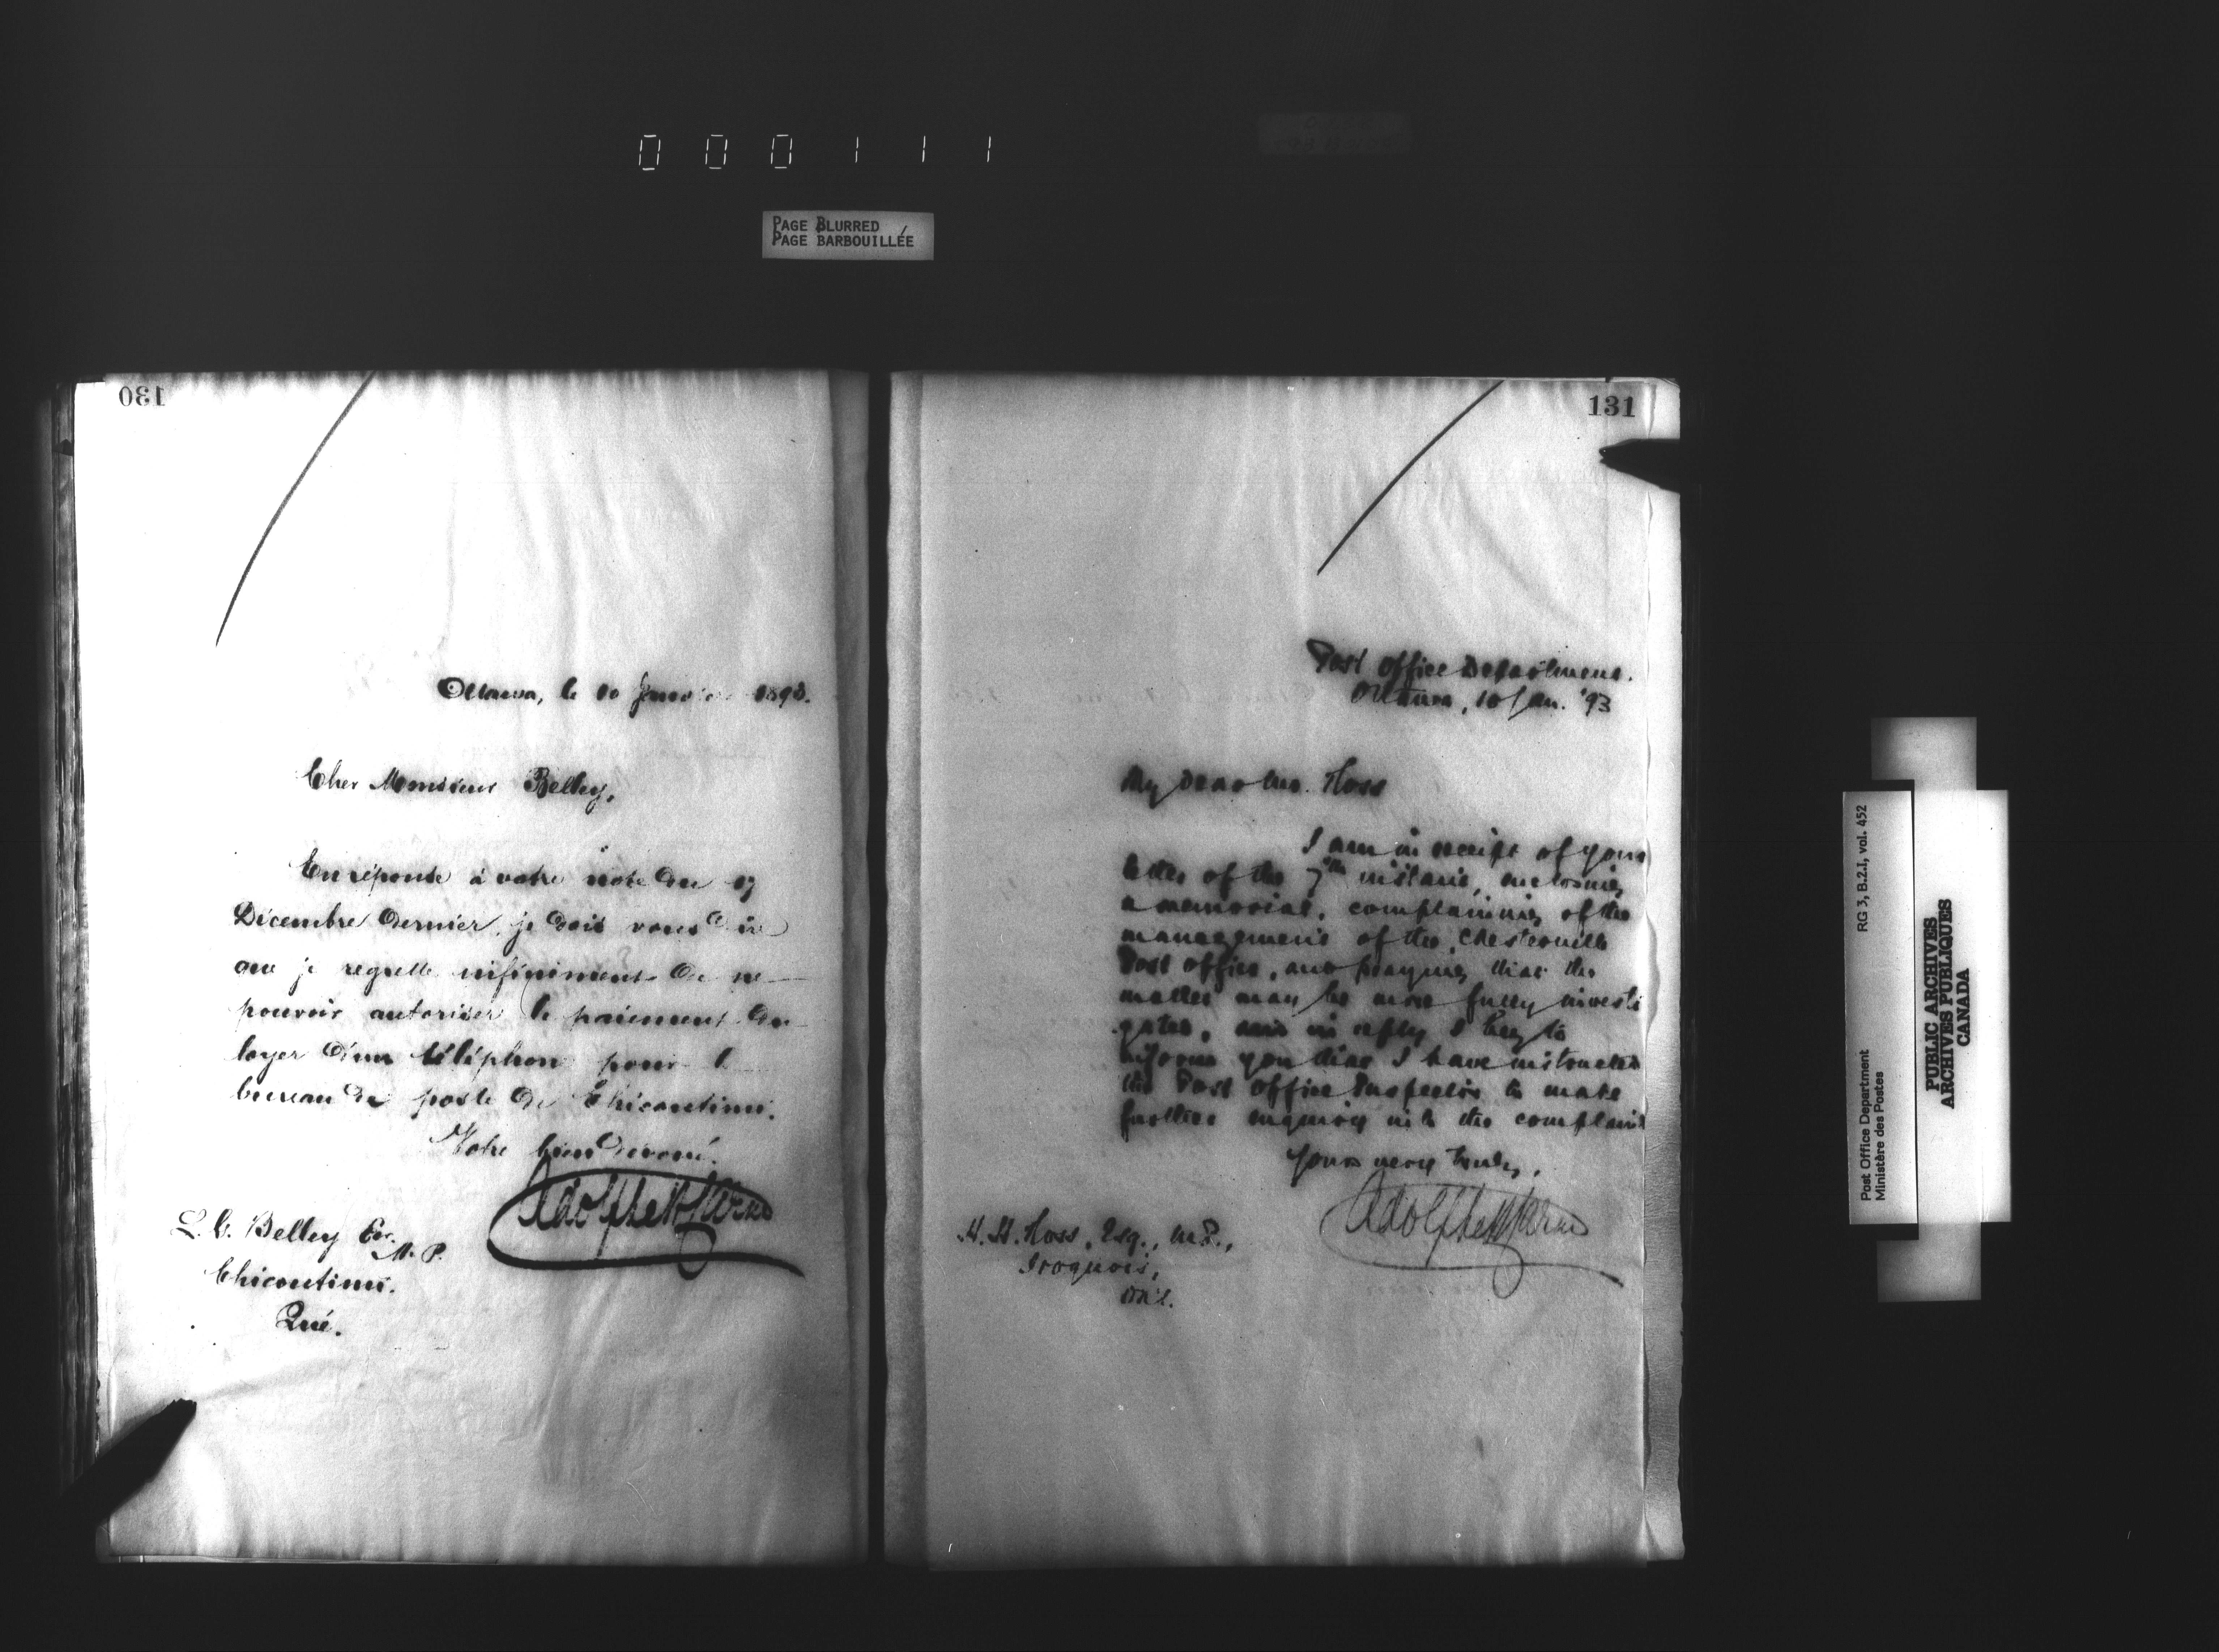 000111
PAGE BLURRED
PAGE BARBOUILLÉE
130
Ottawa, le 10 Janvier 1893.
Cher Monsieur Belley,
En réponse à votre note du 17
Décembre dernier, je dois vous dire
que je regrette infiniment de ne
pouvoir autoriser le paiement du
loyer d'un téléphone pour le
bureau de poste de Chicoutimi.
Votre bien dévoué.
Adolphe P. Caron
L. C. Belley Ecr.
M. P.
Chicoutimi.
Qué.
131
Post Office Department.
Ottawa, 10 Jan. '93
My Dear Mr. Ross
I am in receipt of your
letter of the 7th instant, enclosing
a memorial, complaining of the
management of the Chesterville
Post Office, and praying that the
matter may be more fully investi
gated, and in reply I beg to
inform you that I have instructed
the Post Office Inspector to make
further inquiry into the complaint
Yours very truly,
Adolphe P. Caron
H. H. Ross, Esq., M.P.,
Iroquois,
Ont.
Post Office Department RG 3, B.2.I, vol. 452
Ministère des Postes
PUBLIC ARCHIVES
ARCHIVES PUBLIQUES
CANADA